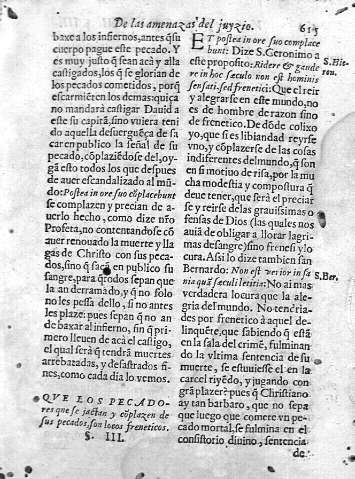 De las amenazas del juyzio. 615
baxe a los infiernos, antes q̃ su
cuerpo pague este pecado. Y
es muy justo q̃ sean acà y alla
castigados, los q̃ se glorian de
los pecados cometidos, porq̃
escarmiẽten los demas, quiça
no mandarà castigar Dauid a
este su capitã, sino vuiera teni
do aquella desuerguẽça de sa
car en publico la señal de su
pecado, cõplaziẽdose del, oy-
gã esto todos los que despues
de auer escandalizado al mũ-
do: Postea in ore suo cõplacebunt
se complazen y precian de a-
uerlo hecho, como dize nr̃o
Profeta, no contentandose cõ
auer renouado la muerte y lla
gas de Christo con sus peca-
dos, sino q̃ sacã en publico su
sangre, para q̃ todos sepan que
la an derramado, y q̃ no solo
no les pessa dello, si no antes
les plaze: pues sepan q̃ no an
de baxar al infierno, sin q̃ pri-
mero lleuen de acà el castigo,
el qual serà q̃ tendrà muertes
arrebatadas, y desastrados fi-
nes, como cada dia lo vemos.
QVE LOS PECADO-
res que se jactan y cõplazen de
sus pecados, son locos freneticos.
§. III.
ET postea in ore suo complace
bunt: Dize S. Geronimo a
este proposito: Ridere & gaude
re in hoc sæculo non est hominis
sensati, sed frenetici: Que el reir
y alegrarse en este mundo, no
es de hombre de razon sino
de frenetico. De dõde colixo
yo, que si es libiandad reyrse
vno, y cõplazerse de las cosas
indiferentes del mundo, q̃ son
en si motiuo de risa, por la mu
cha modestia y compostura q̃
deue tener, que serà el preciar
se y reirse de las grauissimas o
fensas de Dios (las quales nos
auià de obligar a llorar lagri-
mas de sangre) sino frenesi y lo
cura. Assi lo dize tambien san
Bernardo: Non est verior insa
nia quã sæculi letitia: No ai mas
verdadera locura que la ale-
gria del mundo. No tendria-
des por frenetico à aquel de-
linquẽte, que sabiendo q̃ està
en la sala del crimẽ, fulminan
do la vltima sentencia de su
muerte, se estuuiesse el en la
carcel riyẽdo, y jugando con
grã plazer? pues q̃ Christiano
ay tan barbaro, que no sepa
que luego que comete vn pe
cado mortal, se fulmina en el
consistorio diuino, sentencia
de
S. Hie-
ron.
S. Ber.